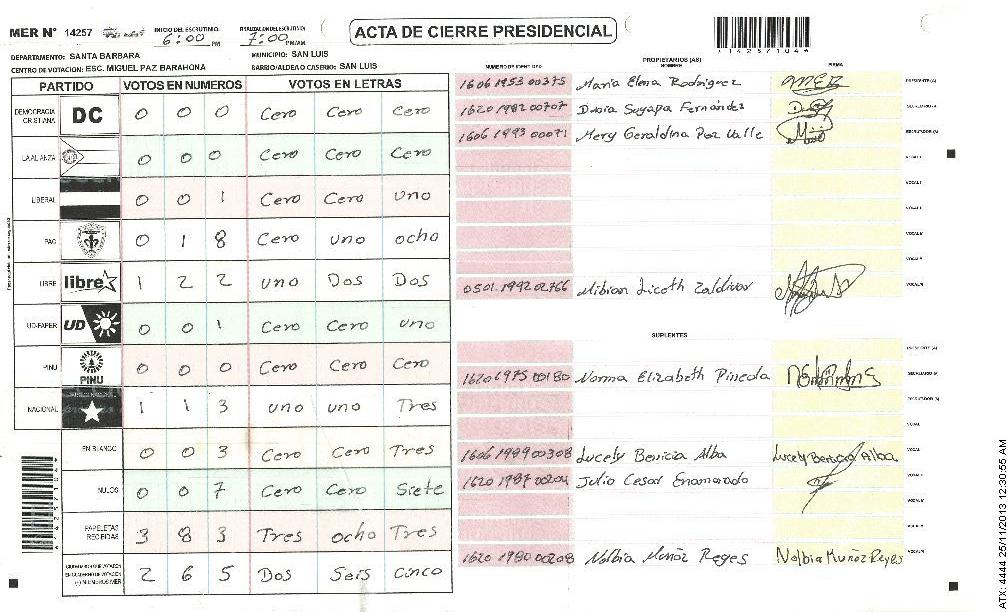 MER N° 14257 INICIO DEL ESCRUTINIO: 6:00 PM FINALIZACION DEL ESCRUTINIO: 7:00 PM/AM
ACTA DE CIERRE PRESIDENCIAL
DEPARTAMENTO: SANTA BARBARA MUNICIPIO: SAN LUIS
CENTRO DE VOTACION: ESC. MIGUEL PAZ BARAHONA BARRIO/ALDEA O CASERIO: SAN LUIS
PARTIDO VOTOS EN NUMEROS VOTOS EN LETRAS
DEMOCRACIA CRISTIANA DC 0 0 0 Cero Cero Cero
LA ALIANZA 0 0 0 Cero Cero Cero
LIBERAL 0 0 1 Cero Cero uno
PAC 0 1 8 Cero uno ocho
LIBRE libre 1 2 2 uno Dos Dos
UD-FAPER UD 0 0 1 Cero Cero uno
PINU PINU 0 0 0 Cero Cero Cero
NACIONAL 1 1 3 uno uno Tres
EN BLANCO 0 0 3 Cero Cero Tres
NULOS 0 0 7 Cero Cero Siete
PAPELETAS RECIBIDAS 3 8 3 Tres ocho Tres
2 6 5 Dos Seis Cinco
PROPIETARIOS (AS)
NUMERO DE IDENTIDAD NOMBRE FIRMA
1606 1953 00375 Maria Elena Rodriguez PRESIDENTE (A)
1620 1982 00707 Suyapa Fernández SECRETARIO (A)
1606 1993 00071 Mery Geraldina Paz Valle ESCRUTADOR (A)
VOCAL I
0501 1992 02766 Mibian Liceth Zaldivar
SUPLENTES
PRESIDENTE (A)
1620 1975 00180 Norma Elizabeth Pineda SECRETARIO (A)
ESCRUTADOR (A)
1606 1989 00308 Lucely Benicia Alba Lucely Benicia Alba
1620 1987 00204 Julio Cesar Enamorado
1620 1980 00208 Nolbia Muñoz Reyes Nolbia Muñoz Reyes
142571044
ATX: 4444 25/11/2013 12:30:55 AM